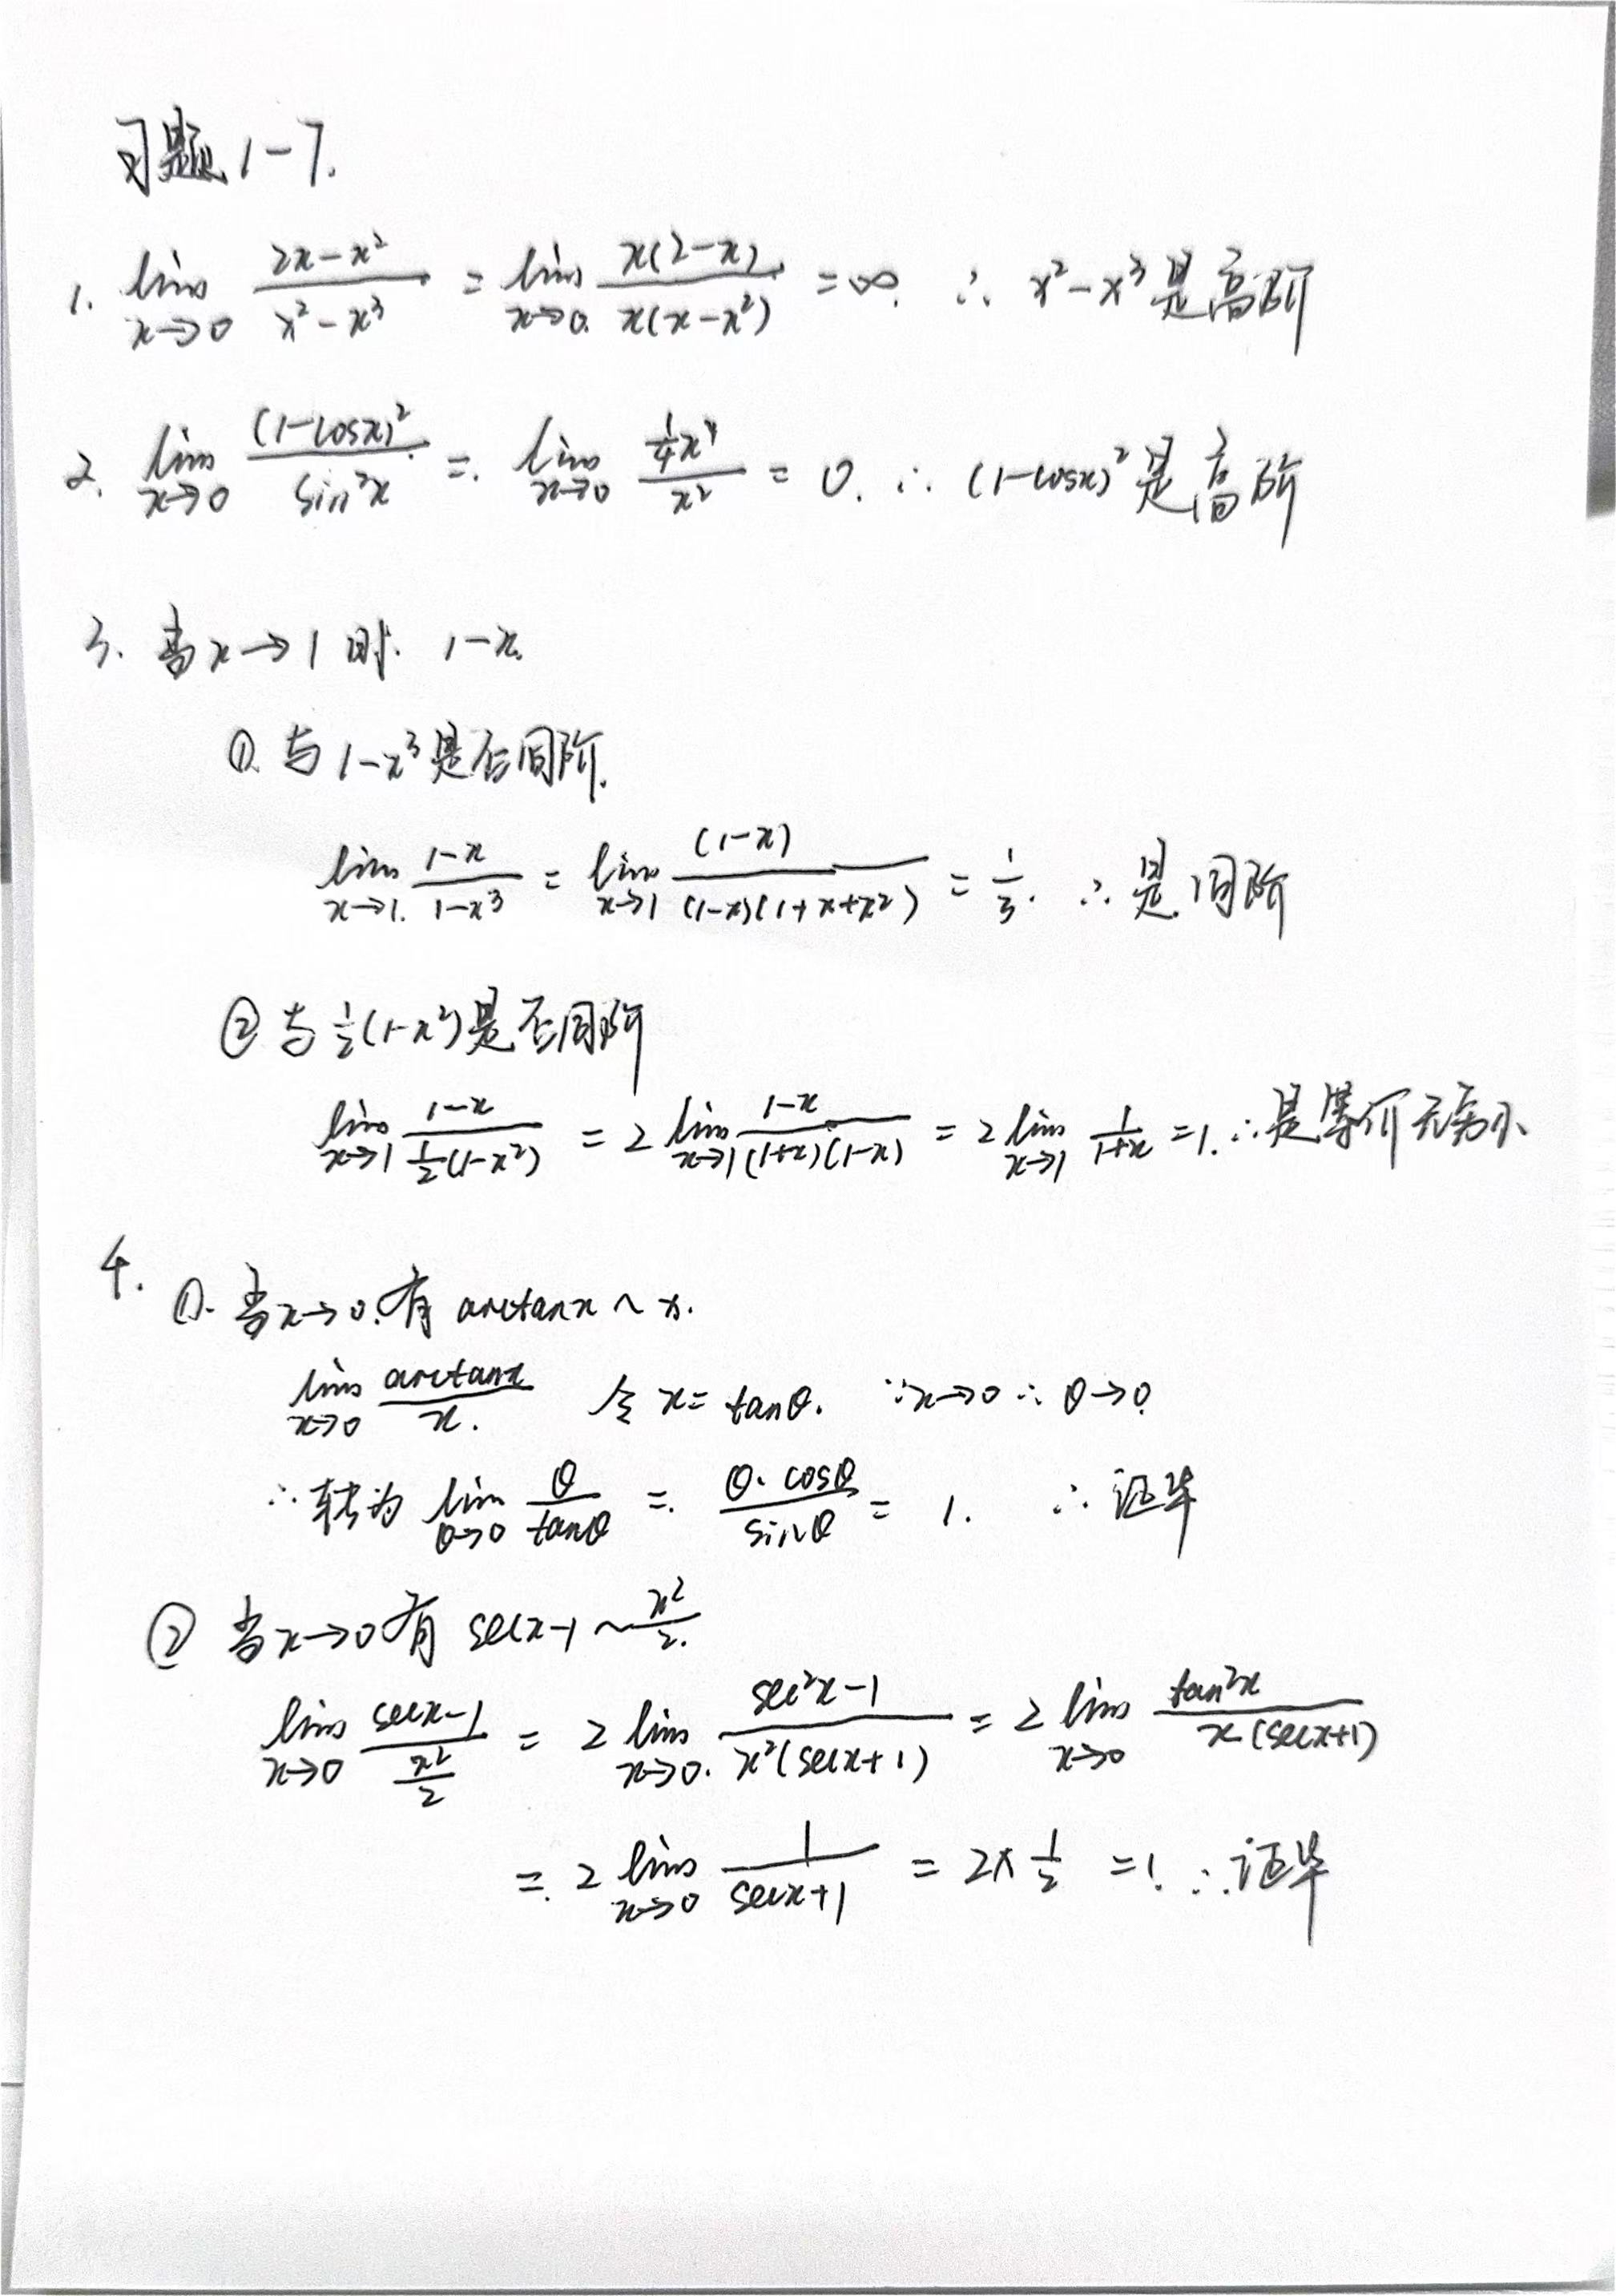 习题1-7.
1. lim_{x→0} (2x-x²)/(x²-x³) = lim_{x→0} x(2-x)/x(x-x²) = ∞. ∴ x²-x³是高阶
2. lim_{x→0} (1-cosx)²/sin²x = lim_{x→0} (1/4 x⁴)/x² = 0. ∴ (1-cosx)²是高阶
3. 当x→1时. 1-x.
①. 与1-x³是否同阶.
lim_{x→1} (1-x)/(1-x³) = lim_{x→1} (1-x)/((1-x)(1+x+x²)) = 1/3. ∴ 是同阶
② 与1/2(1-x²)是否同阶
lim_{x→1} (1-x)/(1/2(1-x²)) = 2 lim_{x→1} (1-x)/((1+x)(1-x)) = 2 lim_{x→1} 1/(1+x) = 1. ∴是等价无穷小
4. ①. 当x→0.有 arctanx ~ x.
lim_{x→0} arctanx/x. 令 x = tanθ. ∵x→0 ∴ θ→0.
∴转为 lim_{θ→0} θ/tanθ = θ·cosθ/sinθ = 1. ∴ 证毕
② 当x→0有 secx-1 ~ x²/2.
lim_{x→0} (secx-1)/(x²/2) = 2 lim_{x→0} (sec²x-1)/(x²(secx+1)) = 2 lim_{x→0} tan²x/(x(secx+1))
= 2 lim_{x→0} 1/(secx+1) = 2×1/2 = 1. ∴证毕